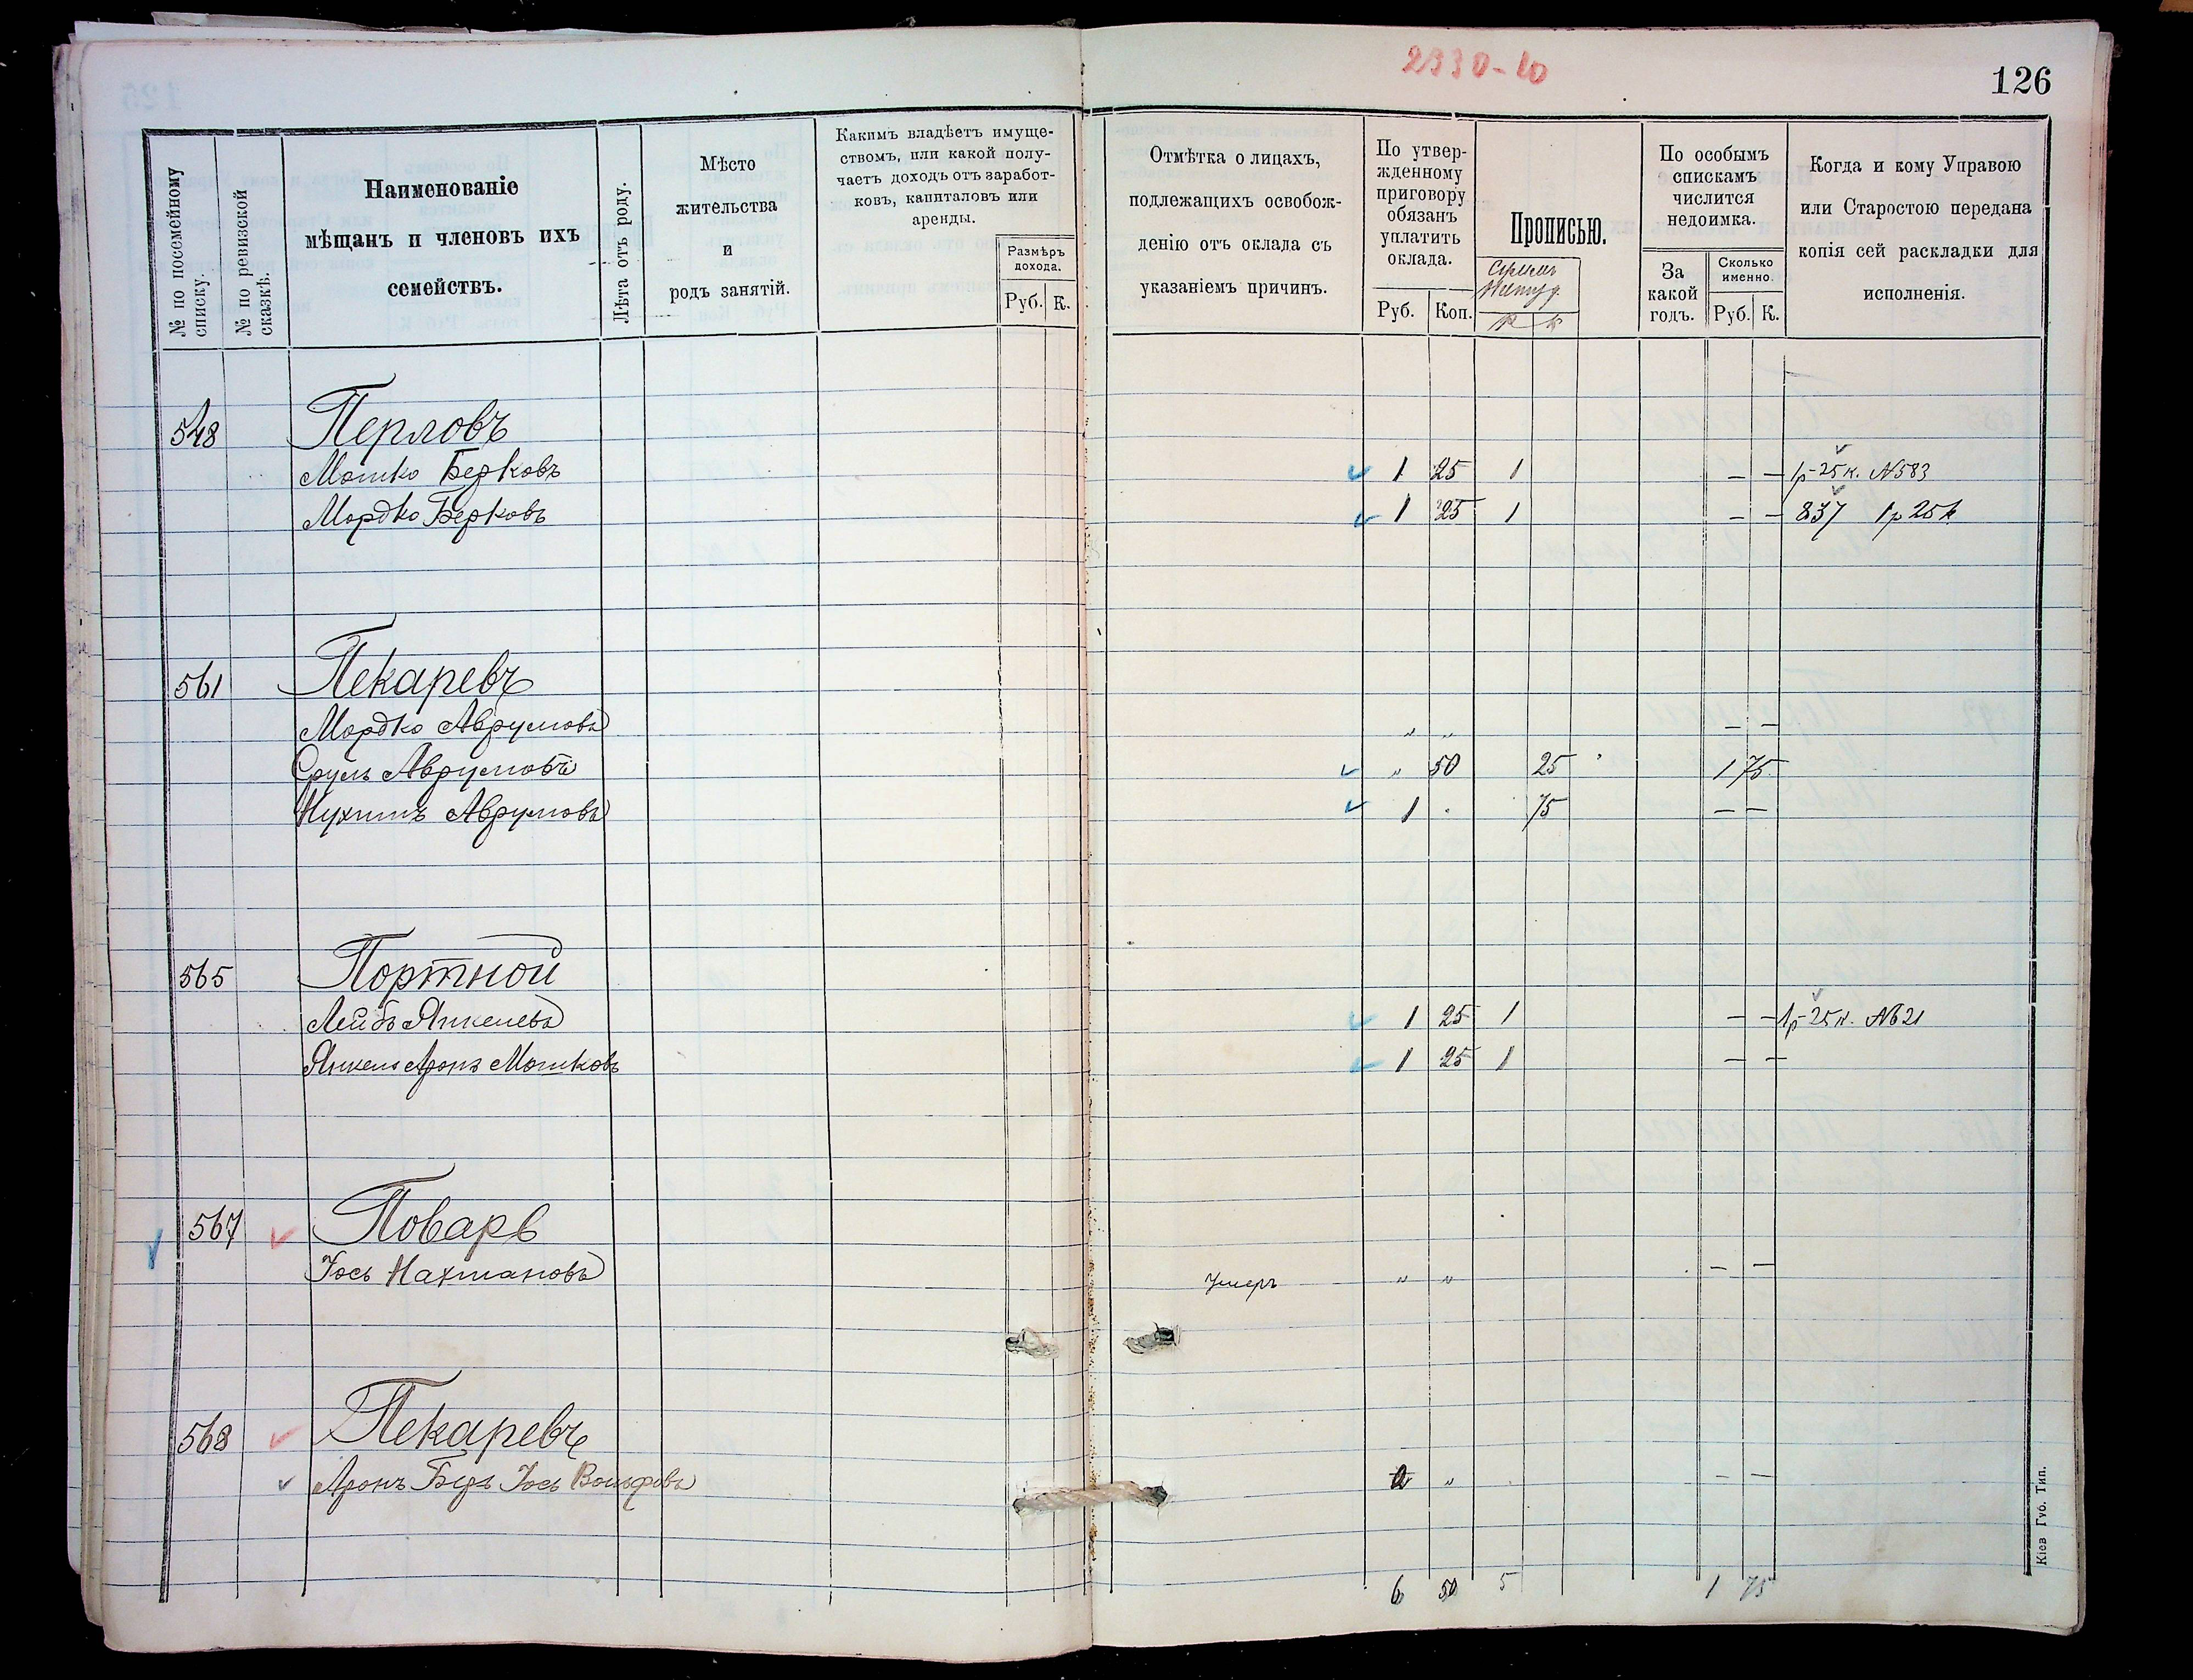 2330-10
126
№ по посемейному списку.
№ по ревизской сказкѣ.
Наименованіе
мѣщанъ и членовъ ихъ
семействъ.
Лѣта отъ роду.
Мѣсто
жительства
и
родъ занятій.
Какимъ владѣетъ имуще-
ствомъ, или какой полу-
чаетъ доходъ отъ заработ-
ковъ, капиталовъ или
аренды.
Размѣръ
дохода.
Руб. К.
Отмѣтка о лицахъ,
подлежащихъ освобож-
денію отъ оклада съ
указаніемъ причинъ.
По утвер-
жденному
приговору
обязанъ
уплатить
оклада.
Руб. Коп.
Прописью.
Р К
По особымъ
спискамъ
числится
недоимка.
За
какой
годъ.
Сколько
именно.
Руб. К.
Когда и кому Управою
или Старостою передана
копія сей раскладки для
исполненія.
548 Перловъ
Мошко Берковъ 1 25 1 – – 1р-25к. №583
Мордко Берковъ 1 25 1 – – 837 1р 25к
561 Пекаревъ
Мордко Аврумовъ " " – –
Сруль Аврумовъ " 50 25 1 75
Нухимъ Аврумовъ 1 . 75 – –
565 Портной
Лейбъ Янкелевъ 1 25 1 – – 1р-25к. №621
Янкель Аронъ Мошковъ 1 25 1 – –
567 Поваръ
Іось Нахмановъ Умеръ " " – –
568 Пекаревъ
Аронъ Беръ Іось Вольфовъ " – –
6 50 5 1 75
Кіев Губ. Тип.